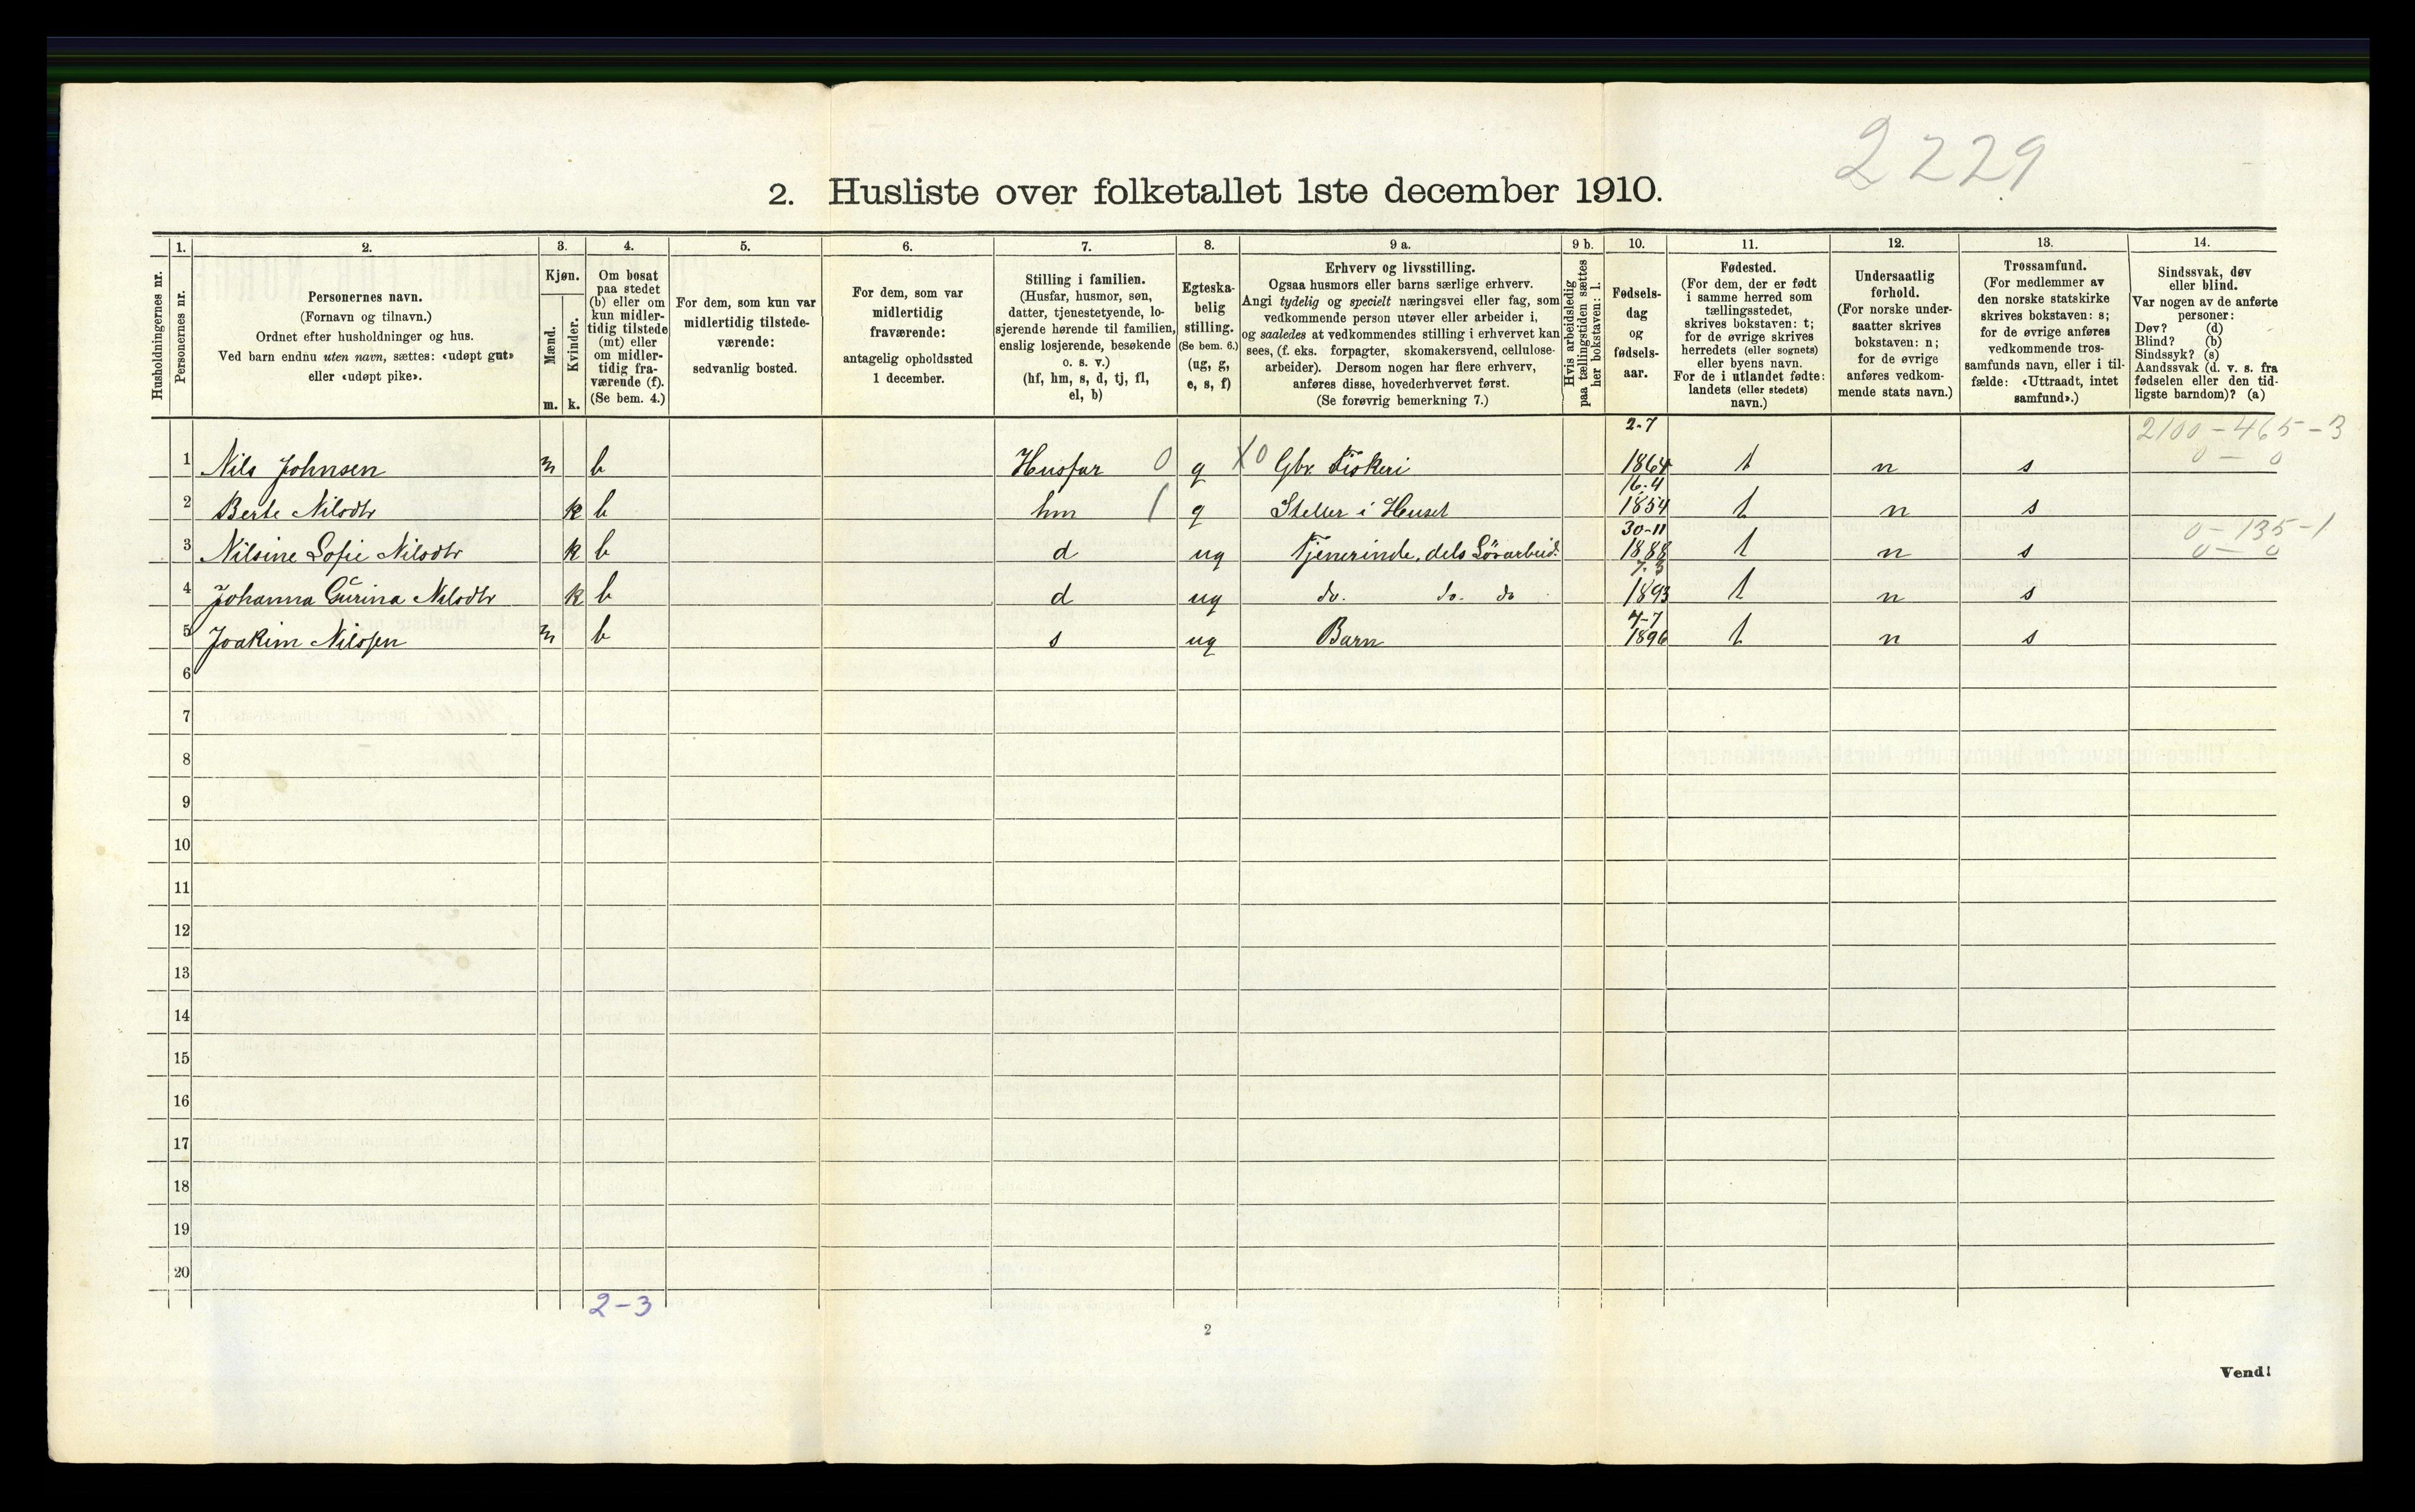 2229
2. Husliste over folketallet 1ste december 1910.
Husholdningernes nr.
1.
Personernes nr.
2.
Personernes navn.
(Fornavn og tilnavn.)
Ordnet efter husholdninger og hus.
Ved barn endnu uten navn, sættes: «udøpt gut»
eller «udøpt pike».
3.
Kjøn.
Mænd.
Kvinder.
m. k.
4.
Om bosat
paa stedet
(b) eller om
kun midler-
tidig tilstede
(mt) eller
om midler-
tidig fra-
værende (f).
(Se bem. 4.)
5.
For dem, som kun var
midlertidig tilstede-
værende:
sedvanlig bosted.
6.
For dem, som var
midlertidig
fraværende:
antagelig opholdssted
1 december.
7.
Stilling i familien.
(Husfar, husmor, søn,
datter, tjenestetyende, lo-
sjerende hørende til familien,
enslig losjerende, besøkende
o. s. v.)
(hf, hm, s, d, tj, fl,
el, b)
8.
Egteska-
belig
stilling.
(Se bem. 6.)
(ug, g,
e, s, f)
9 a.
Erhverv og livsstilling.
Ogsaa husmors eller barns særlige erhverv.
Angi tydelig og specielt næringsvei eller fag, som
vedkommende person utøver eller arbeider i,
og saaledes at vedkommendes stilling i erhvervet kan
sees, (f. eks. forpagter, skomakersvend, cellulose-
arbeider). Dersom nogen har flere erhverv,
anføres disse, hovederhvervet først.
(Se forøvrig bemerkning 7.)
9 b.
Hvis arbeidsledig
paa tællingstiden sættes
her bokstaven: l.
10.
Fødsels-
dag
og
fødsels-
aar.
11.
Fødested.
(For dem, der er født
i samme herred som
tællingsstedet,
skrives bokstaven: t;
for de øvrige skrives
herredets (eller sognets)
eller byens navn.
For de i utlandet fødte:
landets (eller stedets)
navn.)
12.
Undersaatlig
forhold.
(For norske under-
saatter skrives
bokstaven: n;
for de øvrige
anføres vedkom-
mende stats navn.)
13.
Trossamfund.
(For medlemmer av
den norske statskirke
skrives bokstaven: s;
for de øvrige anføres
vedkommende tros-
samfunds navn, eller i til-
fælde: «Uttraadt, intet
samfund».)
14.
Sindssvak, døv
eller blind.
Var nogen av de anførte
personer:
Døv? (d)
Blind? (b)
Sindssyk? (s)
Aandssvak (d. v. s. fra
fødselen eller den tid-
ligste barndom)? (a)
2-7 2100-465-3
1 Nils Johnsen m b Husfar 0 g X0 Gbr. Fiskeri 1864 t n s 0 - 0
16-4
2 Berte Nilsdtr k b hm 1 g Steller i Huset 1854 t n s
30-11 0-135-1
3 Nilsine Sofie Nilsdtr k b d ug Tjenerinde, dels Lösarbeid. 1888 t n s 0 - 0
7-3
4 Johanna Gurina Nilsdtr k b d ug do. do. do 1893 t n s
4-7
5 Joakim Nilssen m b s ug Barn 1896 t n s
6
7
8
9
10
11
12
13
14
15
16
17
18
19
20
2-3
2
Vend!